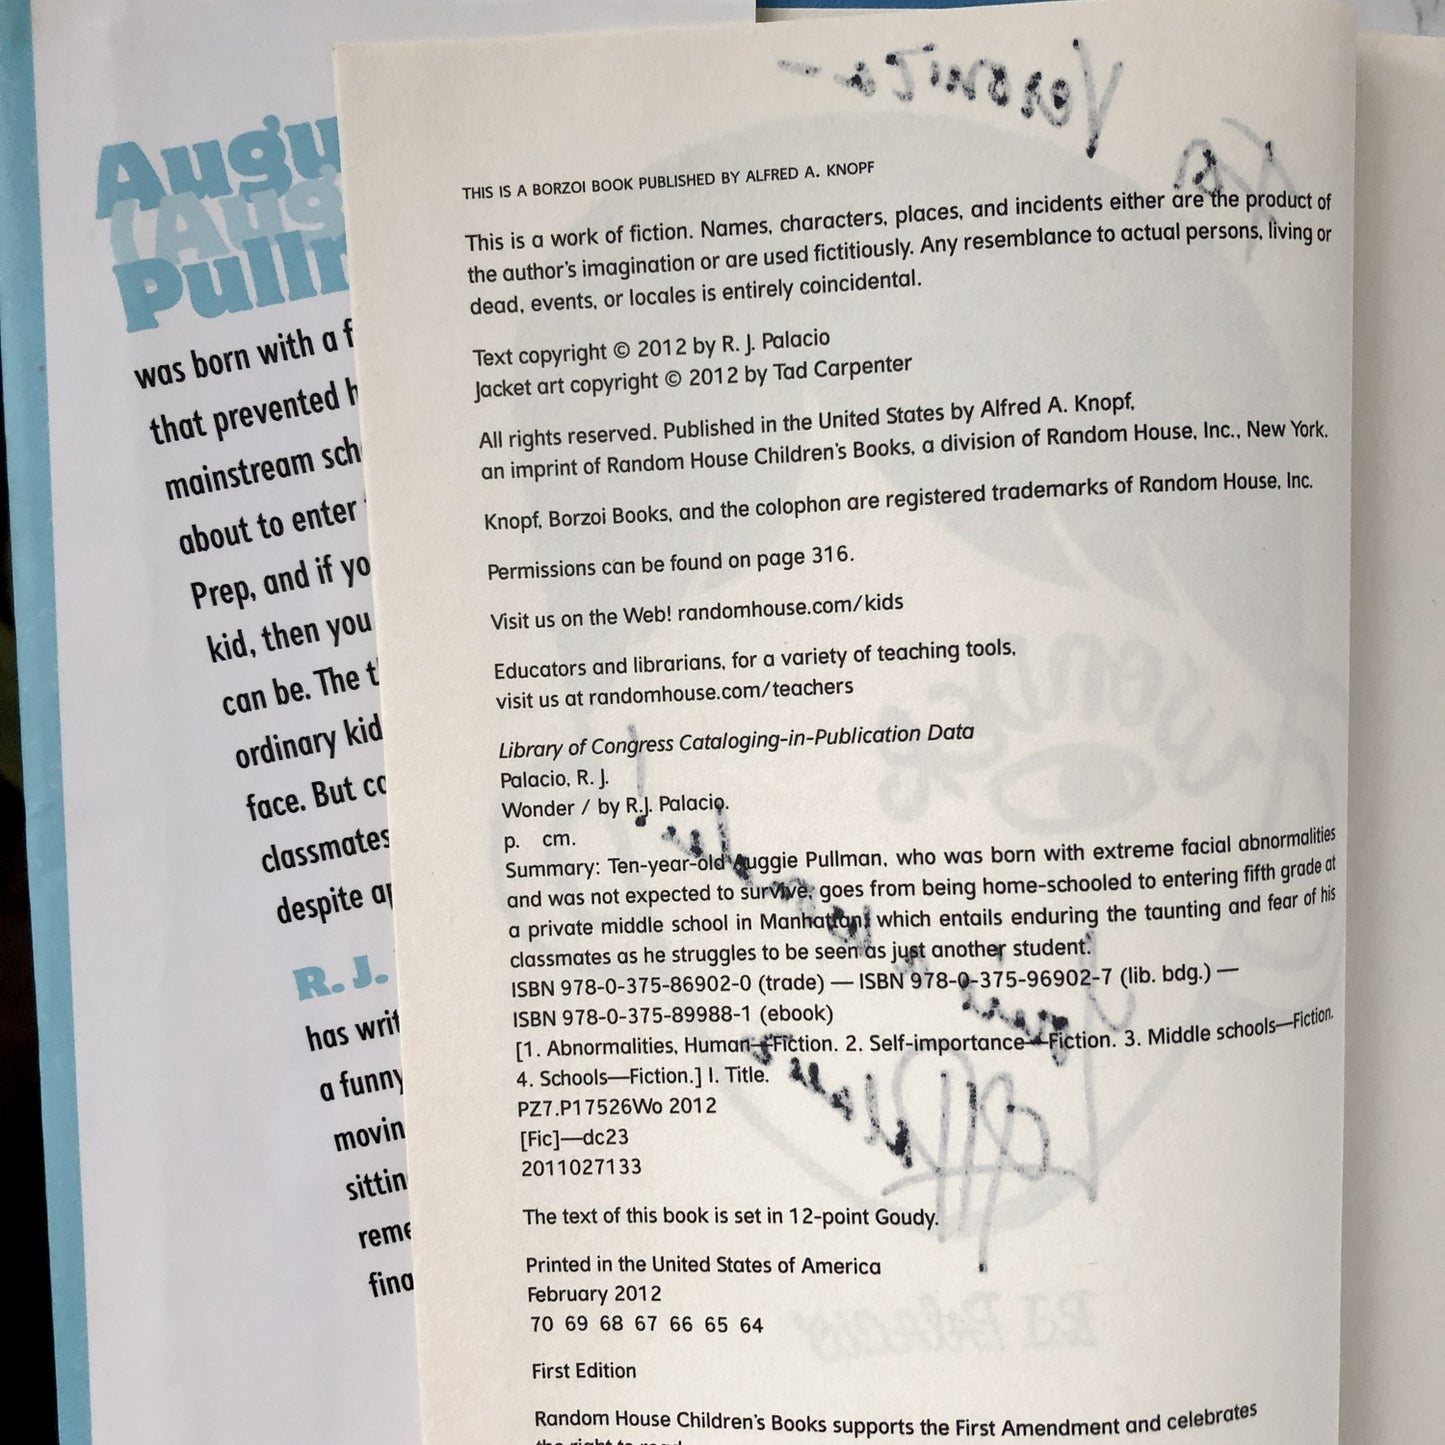 Augu
(Aug
Pullr
was born with a f
that prevented h
mainstream sch
about to enter
Prep, and if yo
kid, then you
can be. The t
ordinary kid
face. But co
classmates
despite ap
R. J.
has writ
a funny
movin
sittin
reme
fina
For
Veronica—
THIS IS A BORZOI BOOK PUBLISHED BY ALFRED A. KNOPF
This is a work of fiction. Names, characters, places, and incidents either are the product of
the author's imagination or are used fictitiously. Any resemblance to actual persons, living or
dead, events, or locales is entirely coincidental.
Text copyright © 2012 by R. J. Palacio
Jacket art copyright © 2012 by Tad Carpenter
All rights reserved. Published in the United States by Alfred A. Knopf,
an imprint of Random House Children's Books, a division of Random House, Inc., New York.
Knopf, Borzoi Books, and the colophon are registered trademarks of Random House, Inc.
Permissions can be found on page 316.
Visit us on the Web! randomhouse.com/kids
Educators and librarians, for a variety of teaching tools,
visit us at randomhouse.com/teachers
Library of Congress Cataloging-in-Publication Data
Palacio, R. J.
Wonder / by R.J. Palacio.
p. cm.
Summary: Ten-year-old Auggie Pullman, who was born with extreme facial abnormalities
and was not expected to survive, goes from being home-schooled to entering fifth grade at
a private middle school in Manhattan, which entails enduring the taunting and fear of his
classmates as he struggles to be seen as just another student.
ISBN 978-0-375-86902-0 (trade) — ISBN 978-0-375-96902-7 (lib. bdg.) —
ISBN 978-0-375-89988-1 (ebook)
[1. Abnormalities, Human—Fiction. 2. Self-importance—Fiction. 3. Middle schools—Fiction.
4. Schools—Fiction.] I. Title.
PZ7.P17526Wo 2012
[Fic]—dc23
2011027133
The text of this book is set in 12-point Goudy.
Printed in the United States of America
February 2012
70 69 68 67 66 65 64
First Edition
Random House Children's Books supports the First Amendment and celebrates
the right to read.
R J PALACIO